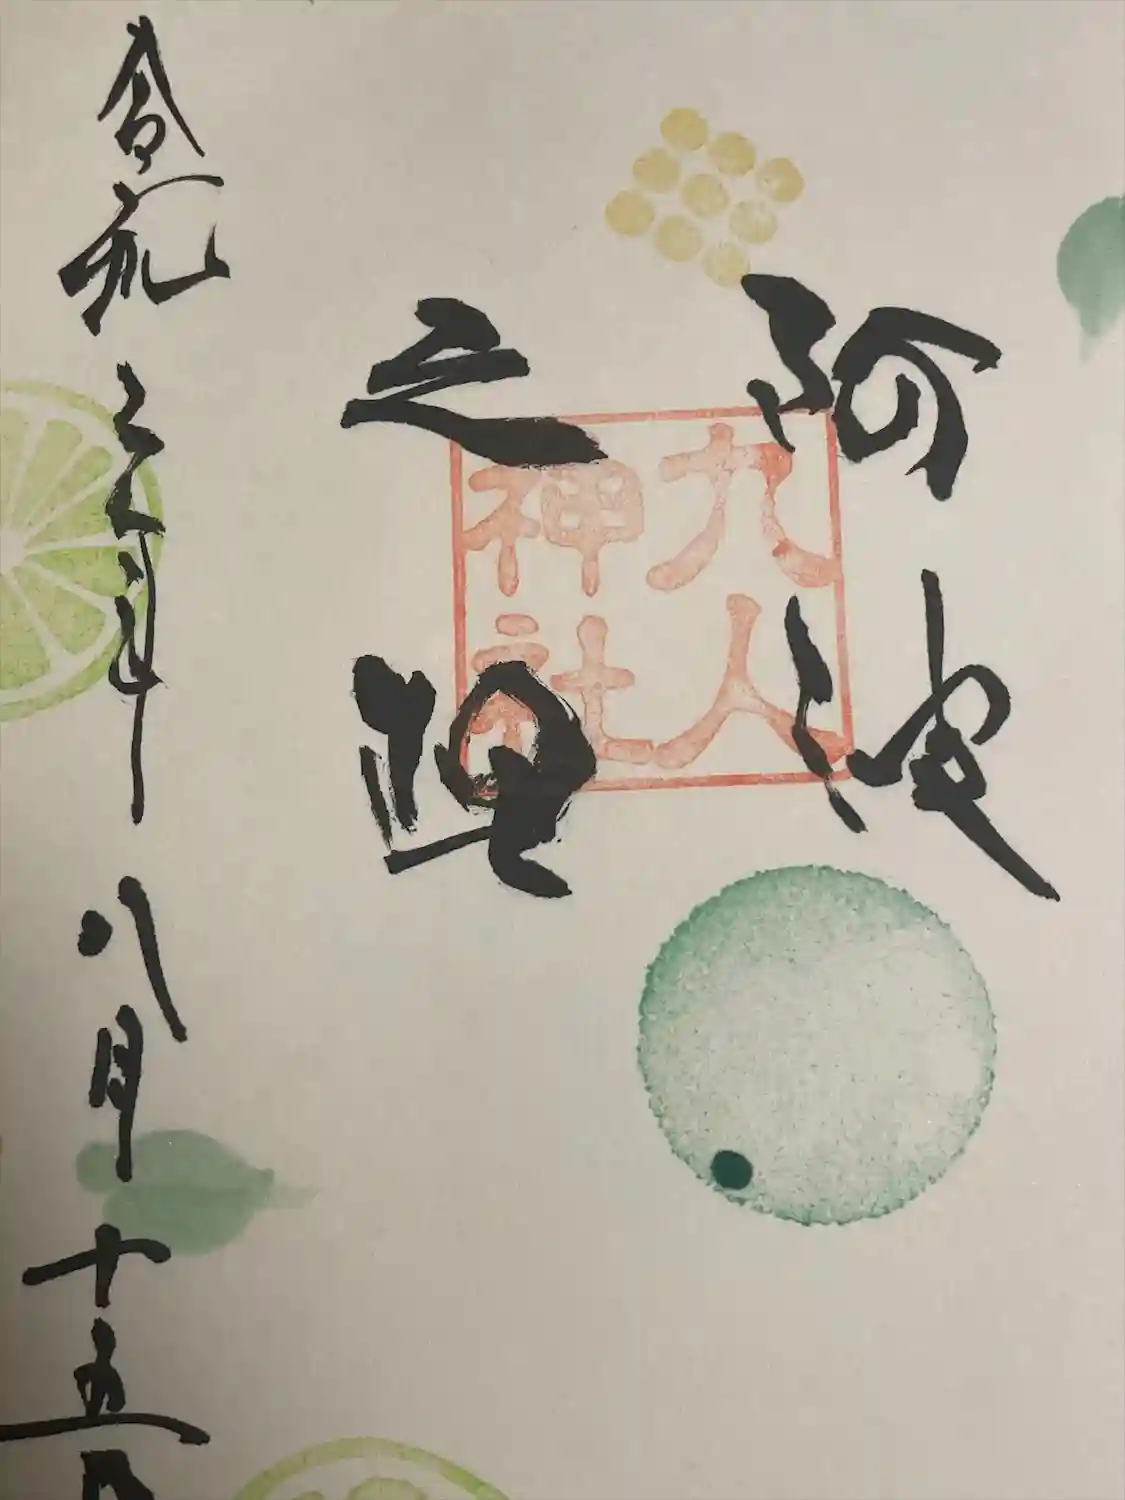 阿波
之
九人
神社
令和三年八月十五日